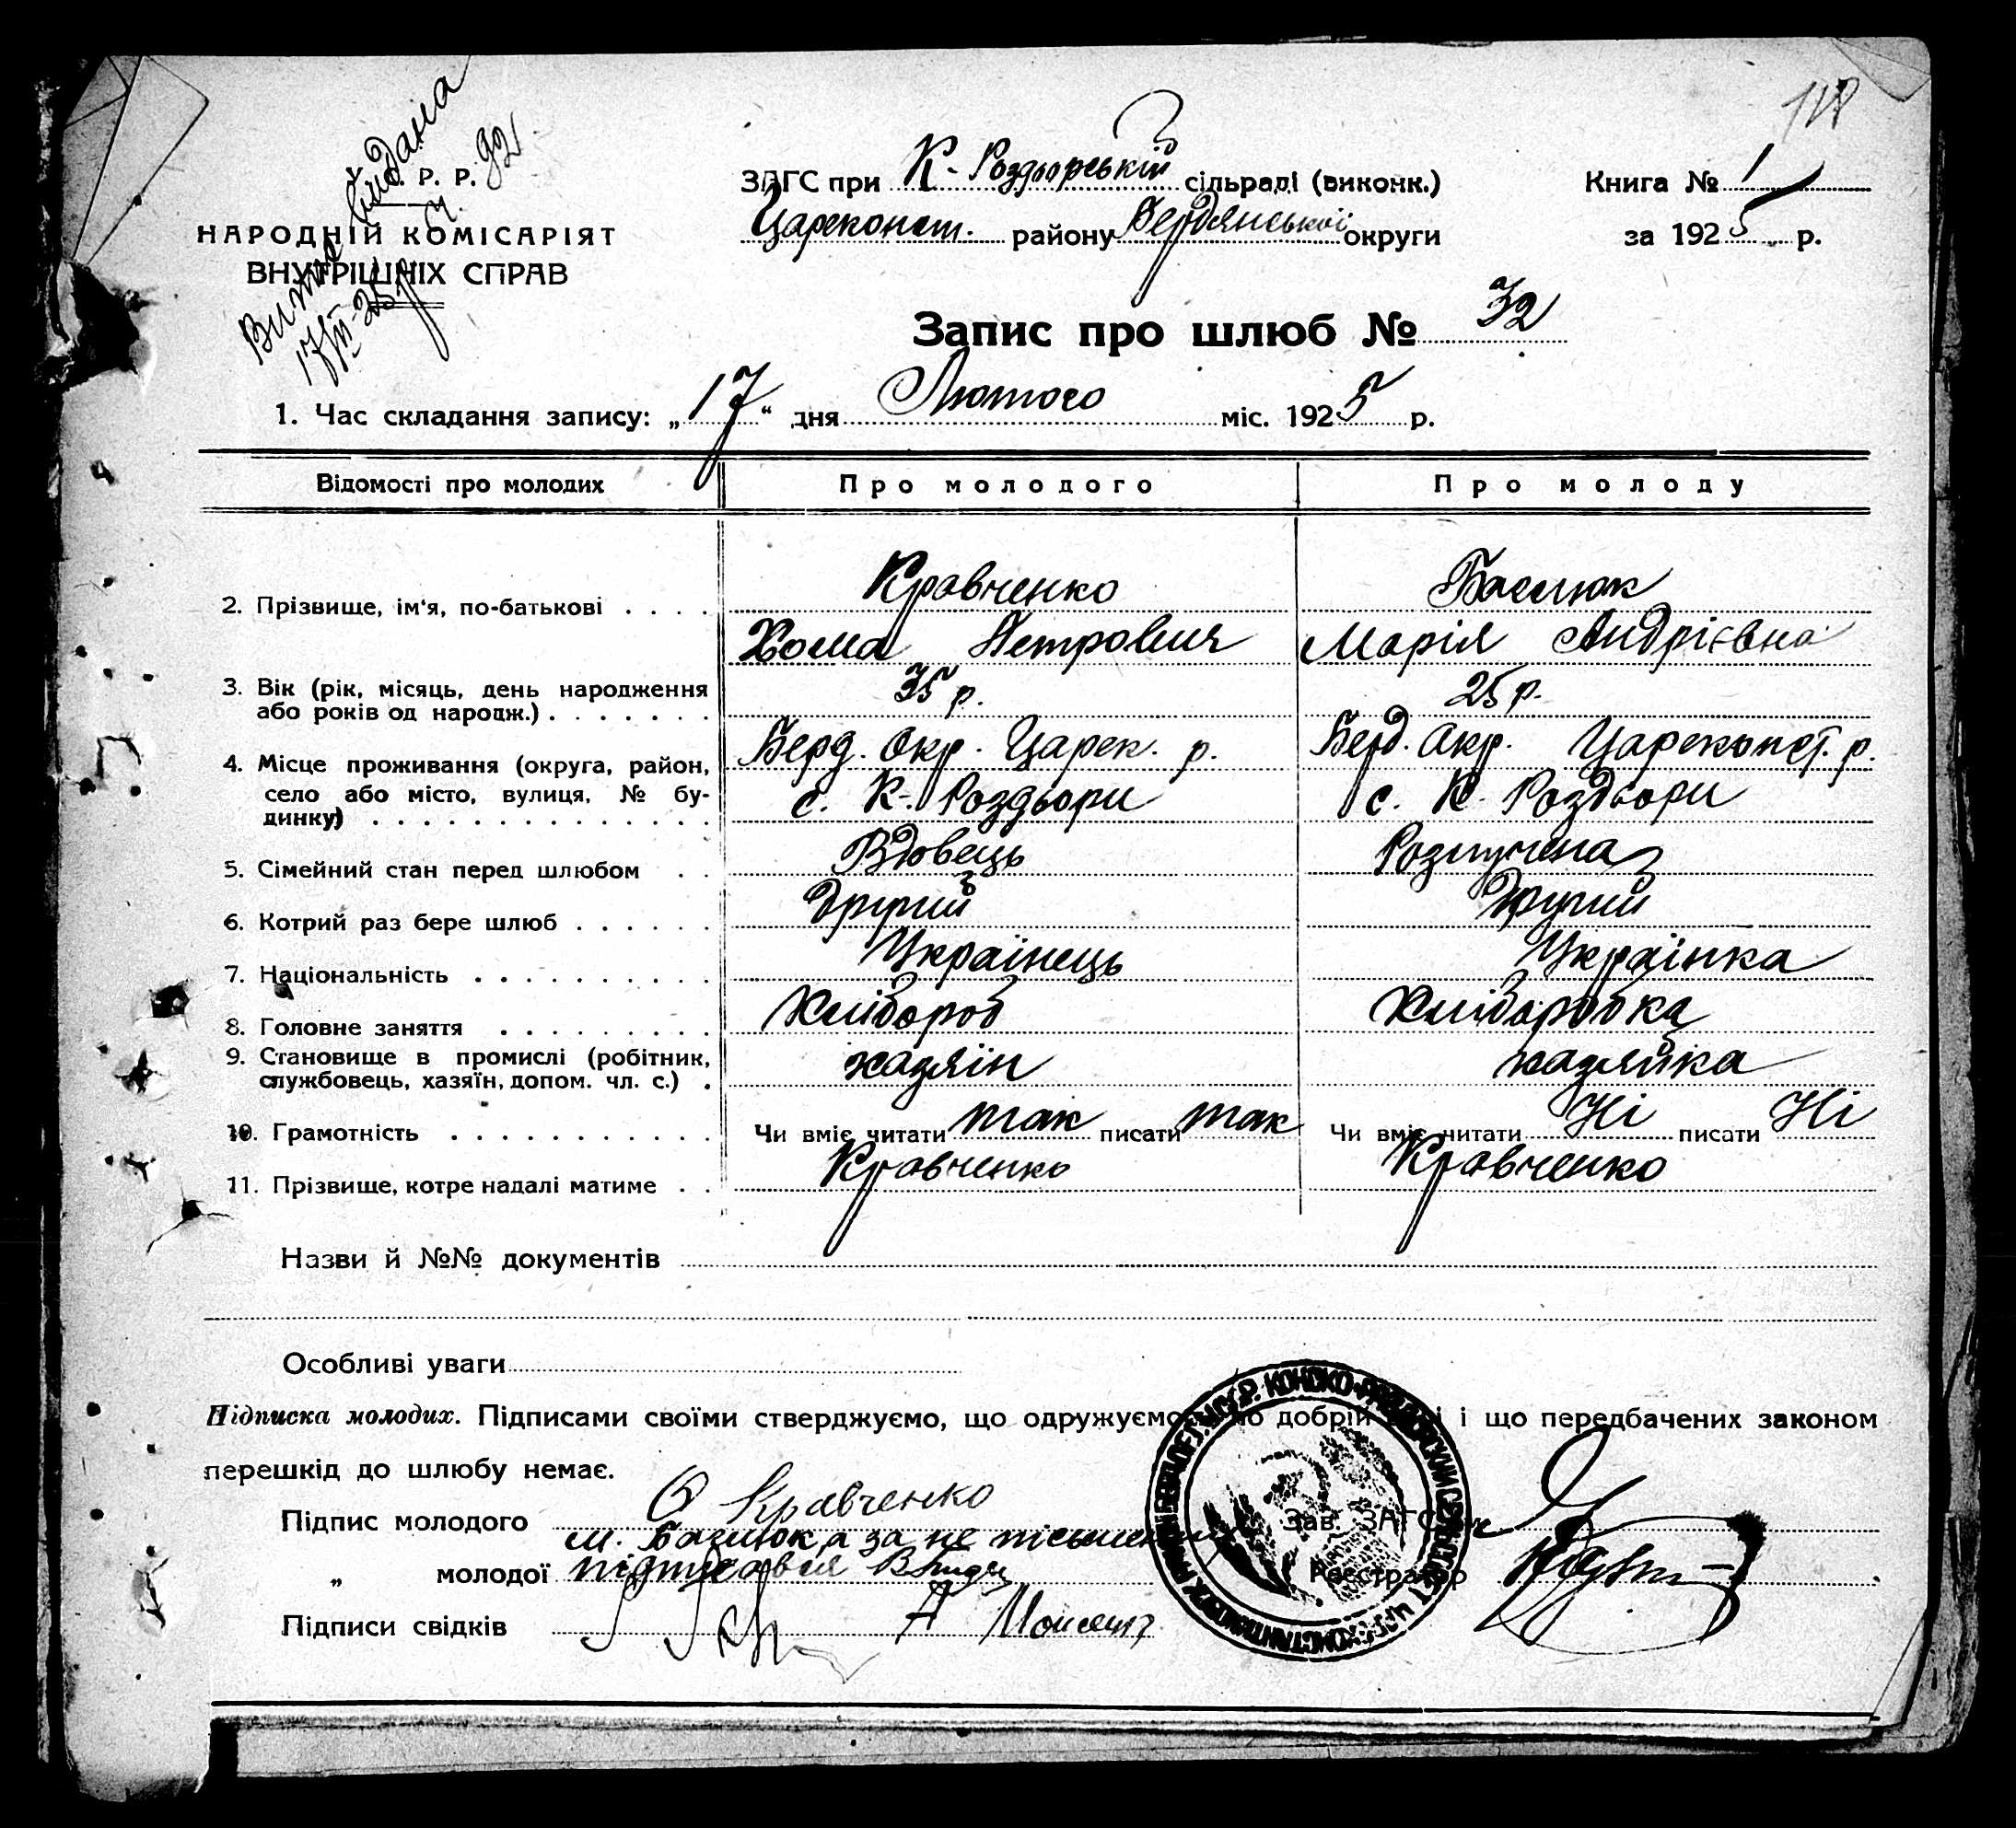 118
Витяг видана
17/II-25 р. Ч. 92
. Р. Р.
НАРОДНІЙ КОМІСАРІЯТ
ВНУТРІШНІХ СПРАВ
ЗАГС при К-Роздорській сільраді (виконк.)
Цареконст. району Бердянської округи
Книга № 1
за 1925 р.
Запис про шлюб № 32
1. Час складання запису: „17“ дня Лютого міс. 1925 р.
Відомості про молодих Про молодого Про молоду
2. Прізвище, ім'я, по-батькові . . . . Кравченко Базилюк
Хома Петрович Марія Андрієвна
3. Вік (рік, місяць, день народження
або років од народж.) . . . . . . . 35 р. 25 р.
4. Місце проживання (округа, район, Берд. Окр. Царек. р. Берд. Окр. Цареконст. р.
село або місто, вулиця, № бу- с. К-Роздори с. К. Роздори
динку) . . . . . . . . . . . . . . .
5. Сімейний стан перед шлюбом . . Вдовець Розлучена
6. Котрий раз бере шлюб . . . . . . Другий Другий
7. Національність . . . . . . . . . . Українець Українка
8. Головне заняття . . . . . . . . . Хлібороб Хліборобка
9. Становище в промислі (робітник, хазяїн хазяйка
службовець, хазяїн, допом. чл. с.) .
10. Грамотність . . . . . . . . . . . Чи вміє читати так писати так Чи вміє читати Ні писати Ні
11. Прізвище, котре надалі матиме . . Кравченко Кравченко
Назви й №№ документів
Особливі уваги
Підписка молодих. Підписами своїми стверджуємо, що одружуємось по добрій волі і що передбачених законом
перешкід до шлюбу немає.
Підпис молодого Кравченко
М. Базилюк а за не письменну
„ молодої підписався
Підписи свідків А
Зав. ЗАГС'ом
Реєстратор